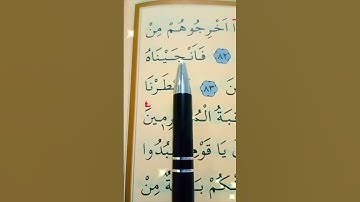 اَخْرِجُوهُمْ مِنْ
﴿٨٢﴾ فَاَنْجَيْنَاهُ
﴿٨٣﴾ طَرْنَا
قِبَةُ الْمُ رِمِينَ
يَا قَوْمِ بُدُوا
كُمْ بَ ةٌ مِنْ